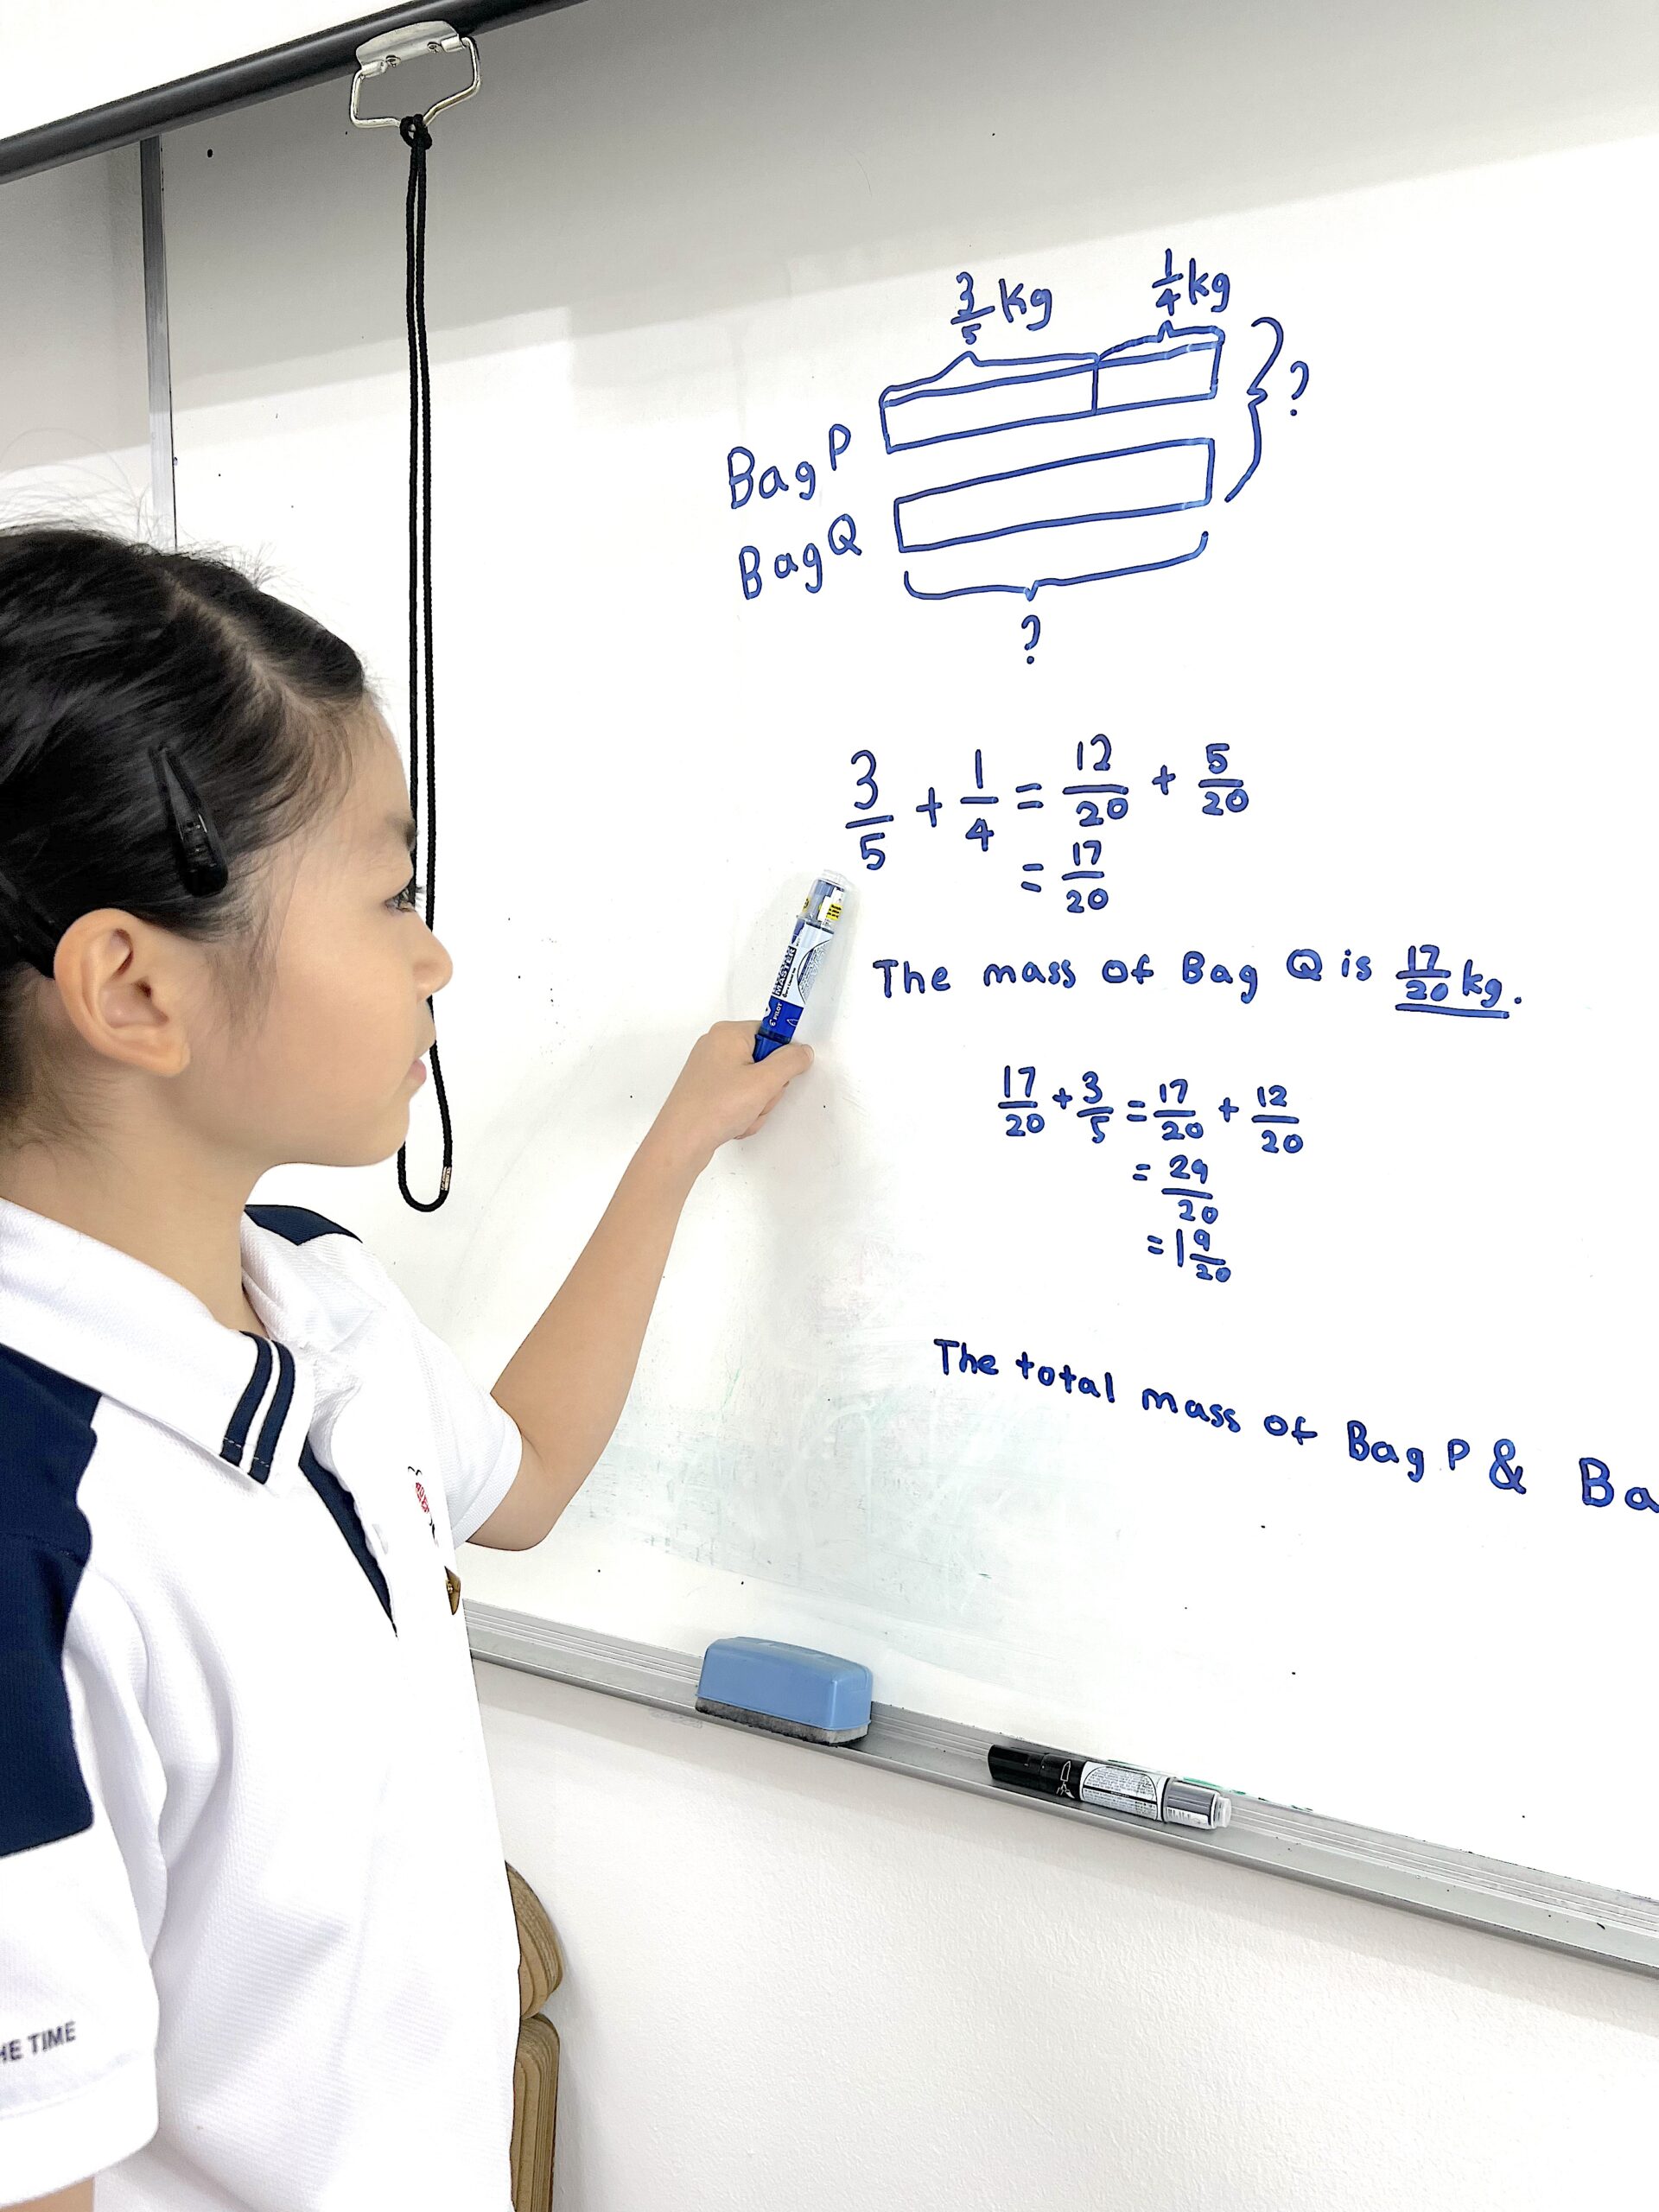 3/5 kg 1/4 kg
?
Bag P
Bag Q
?
3/5 + 1/4 = 12/20 + 5/20
= 17/20
The mass of Bag Q is 17/20 kg.
17/20 + 3/5 = 17/20 + 12/20
= 29/20
= 1 9/20
The total mass of Bag P & Ba
HE TIME
MASTER
PILOT